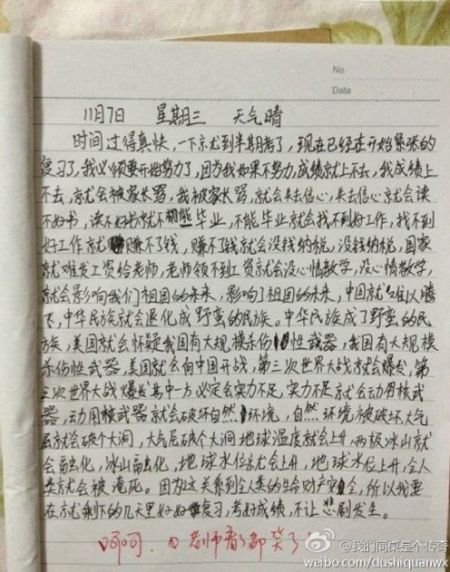 No.
Data
11月7日 星期三 天气晴
时间过得真快，一下就到半期考了，现在已经在开始紧张的
复习了，我必须要开始努力了，因为我如果不努力，成绩就上不去，我成绩上
不去，就会被家长骂，我被家长骂，就会失去信心，失去信心就会读
不好书，读不好书就不能毕业，不能毕业就会找不到好工作，找不到
好工作就赚不了钱，赚不了钱就会没钱纳税，没钱纳税，国家
就难发工资给老师，老师领不到工资就会没心情教学，没心情教学，
就会影响我们祖国的未来，影响了祖国的未来，中国就难以腾
飞，中华民族就会退化成野蛮的民族。中华民族成了野蛮的民
族，美国就会怀疑我国有大规模杀伤性武器，我国有大规模
杀伤性武器，美国就会向中国开战，第三次世界大战就会爆发，第
三次世界大战爆发其中一方必定会实力不足，实力不足就会动用核武
器，动用核武器就会破坏自然环境，自然环境被破坏，大气
层就会破个大洞，大气层破个大洞地球温度就会上升，两极冰山就
会融化，冰山融化，地球水位就会上升，地球水位上升，全人
类就会被淹死。因为这关系到全人类的生命财产安全，所以我要
在就剩下的几天里好好复习，考好成绩，不让悲剧发生。
呵呵. 老师看了都笑了
@我的同桌是个传奇
weibo.com/dushiquanwx